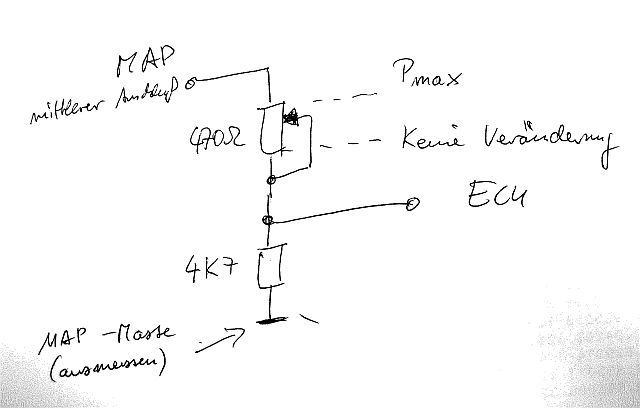 MAP
mittlerer Anschluß
Pmax
470Ω
Keine Veränderung
ECU
4K7
MAP-Masse
(ausmessen)